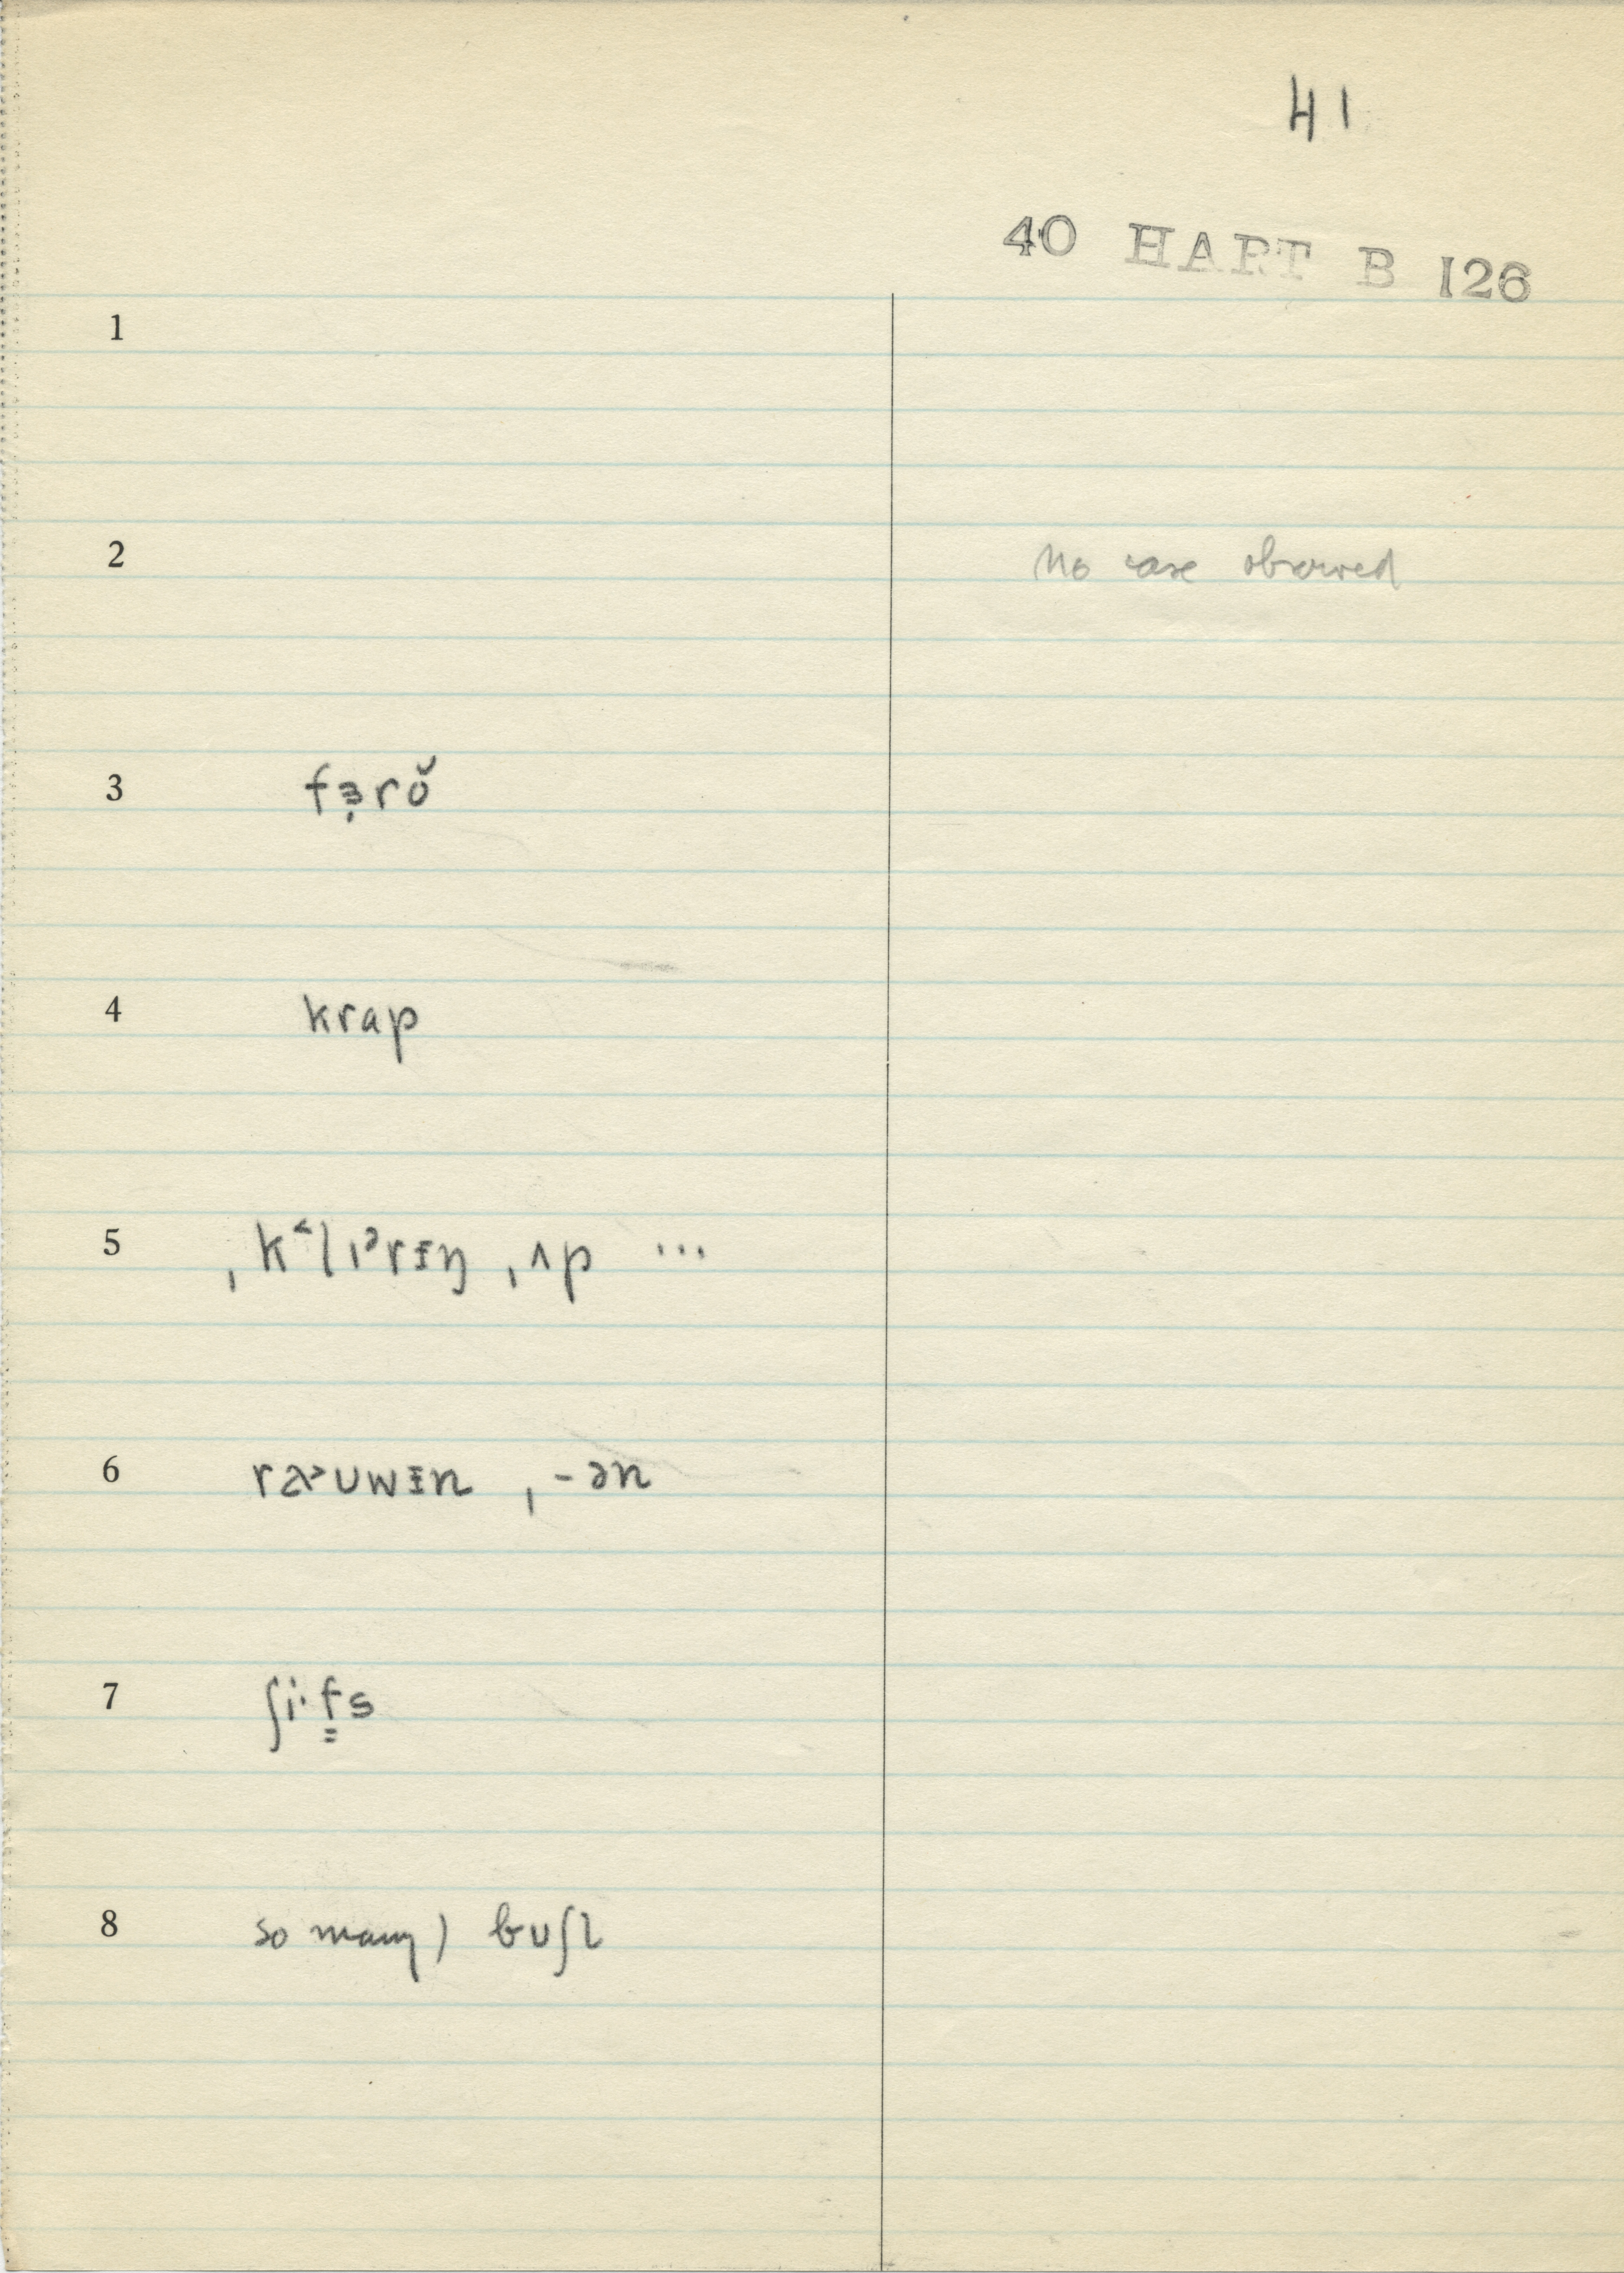 41
40 HART B 126
1
2 no case observed
3 fɜ̣rŏ
4 krap
5 ˌk˂lɪᵊrɪŋ ˌʌp ...
6 rɑ˃ʊwɪn ˌ-ən
7 ʃi·f̳s
8 so many) bʊʃl